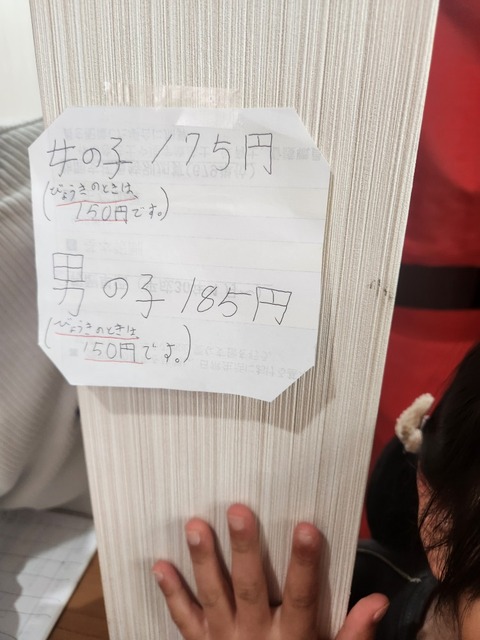 女の子 175円
(びょうきのときは
150円です。)
男の子 185円
(びょうきのときは
150円です。)